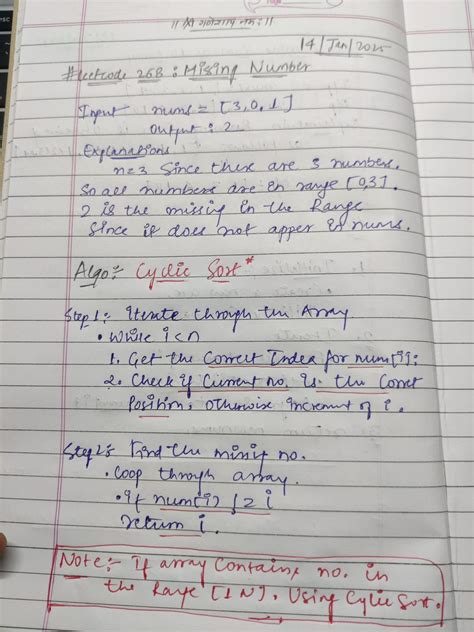 || श्री गणेशाय नमः ||
14/Jan/2025
#Leetcode 268: Missing Number
Input nums = [3,0,1]
Output: 2
Explanations
n=3 Since there are 3 numbers.
So all numbers are in range [0,3].
2 is the missig in the Range
Since it does not apper in nums.
Algo:- Cyclic Sort*
Step 1: Iterate through the Array
• While i<n
1. Get the Correct Index for num[i];
2. Check if Current no. is the Corret
Position, otherwise increment of i.
Step 2: Find the missig no.
• Loop through array.
• if num[i] != i
return i.
Note:- If array Contains no. in
the Range [1 N], Using Cylic Sort.